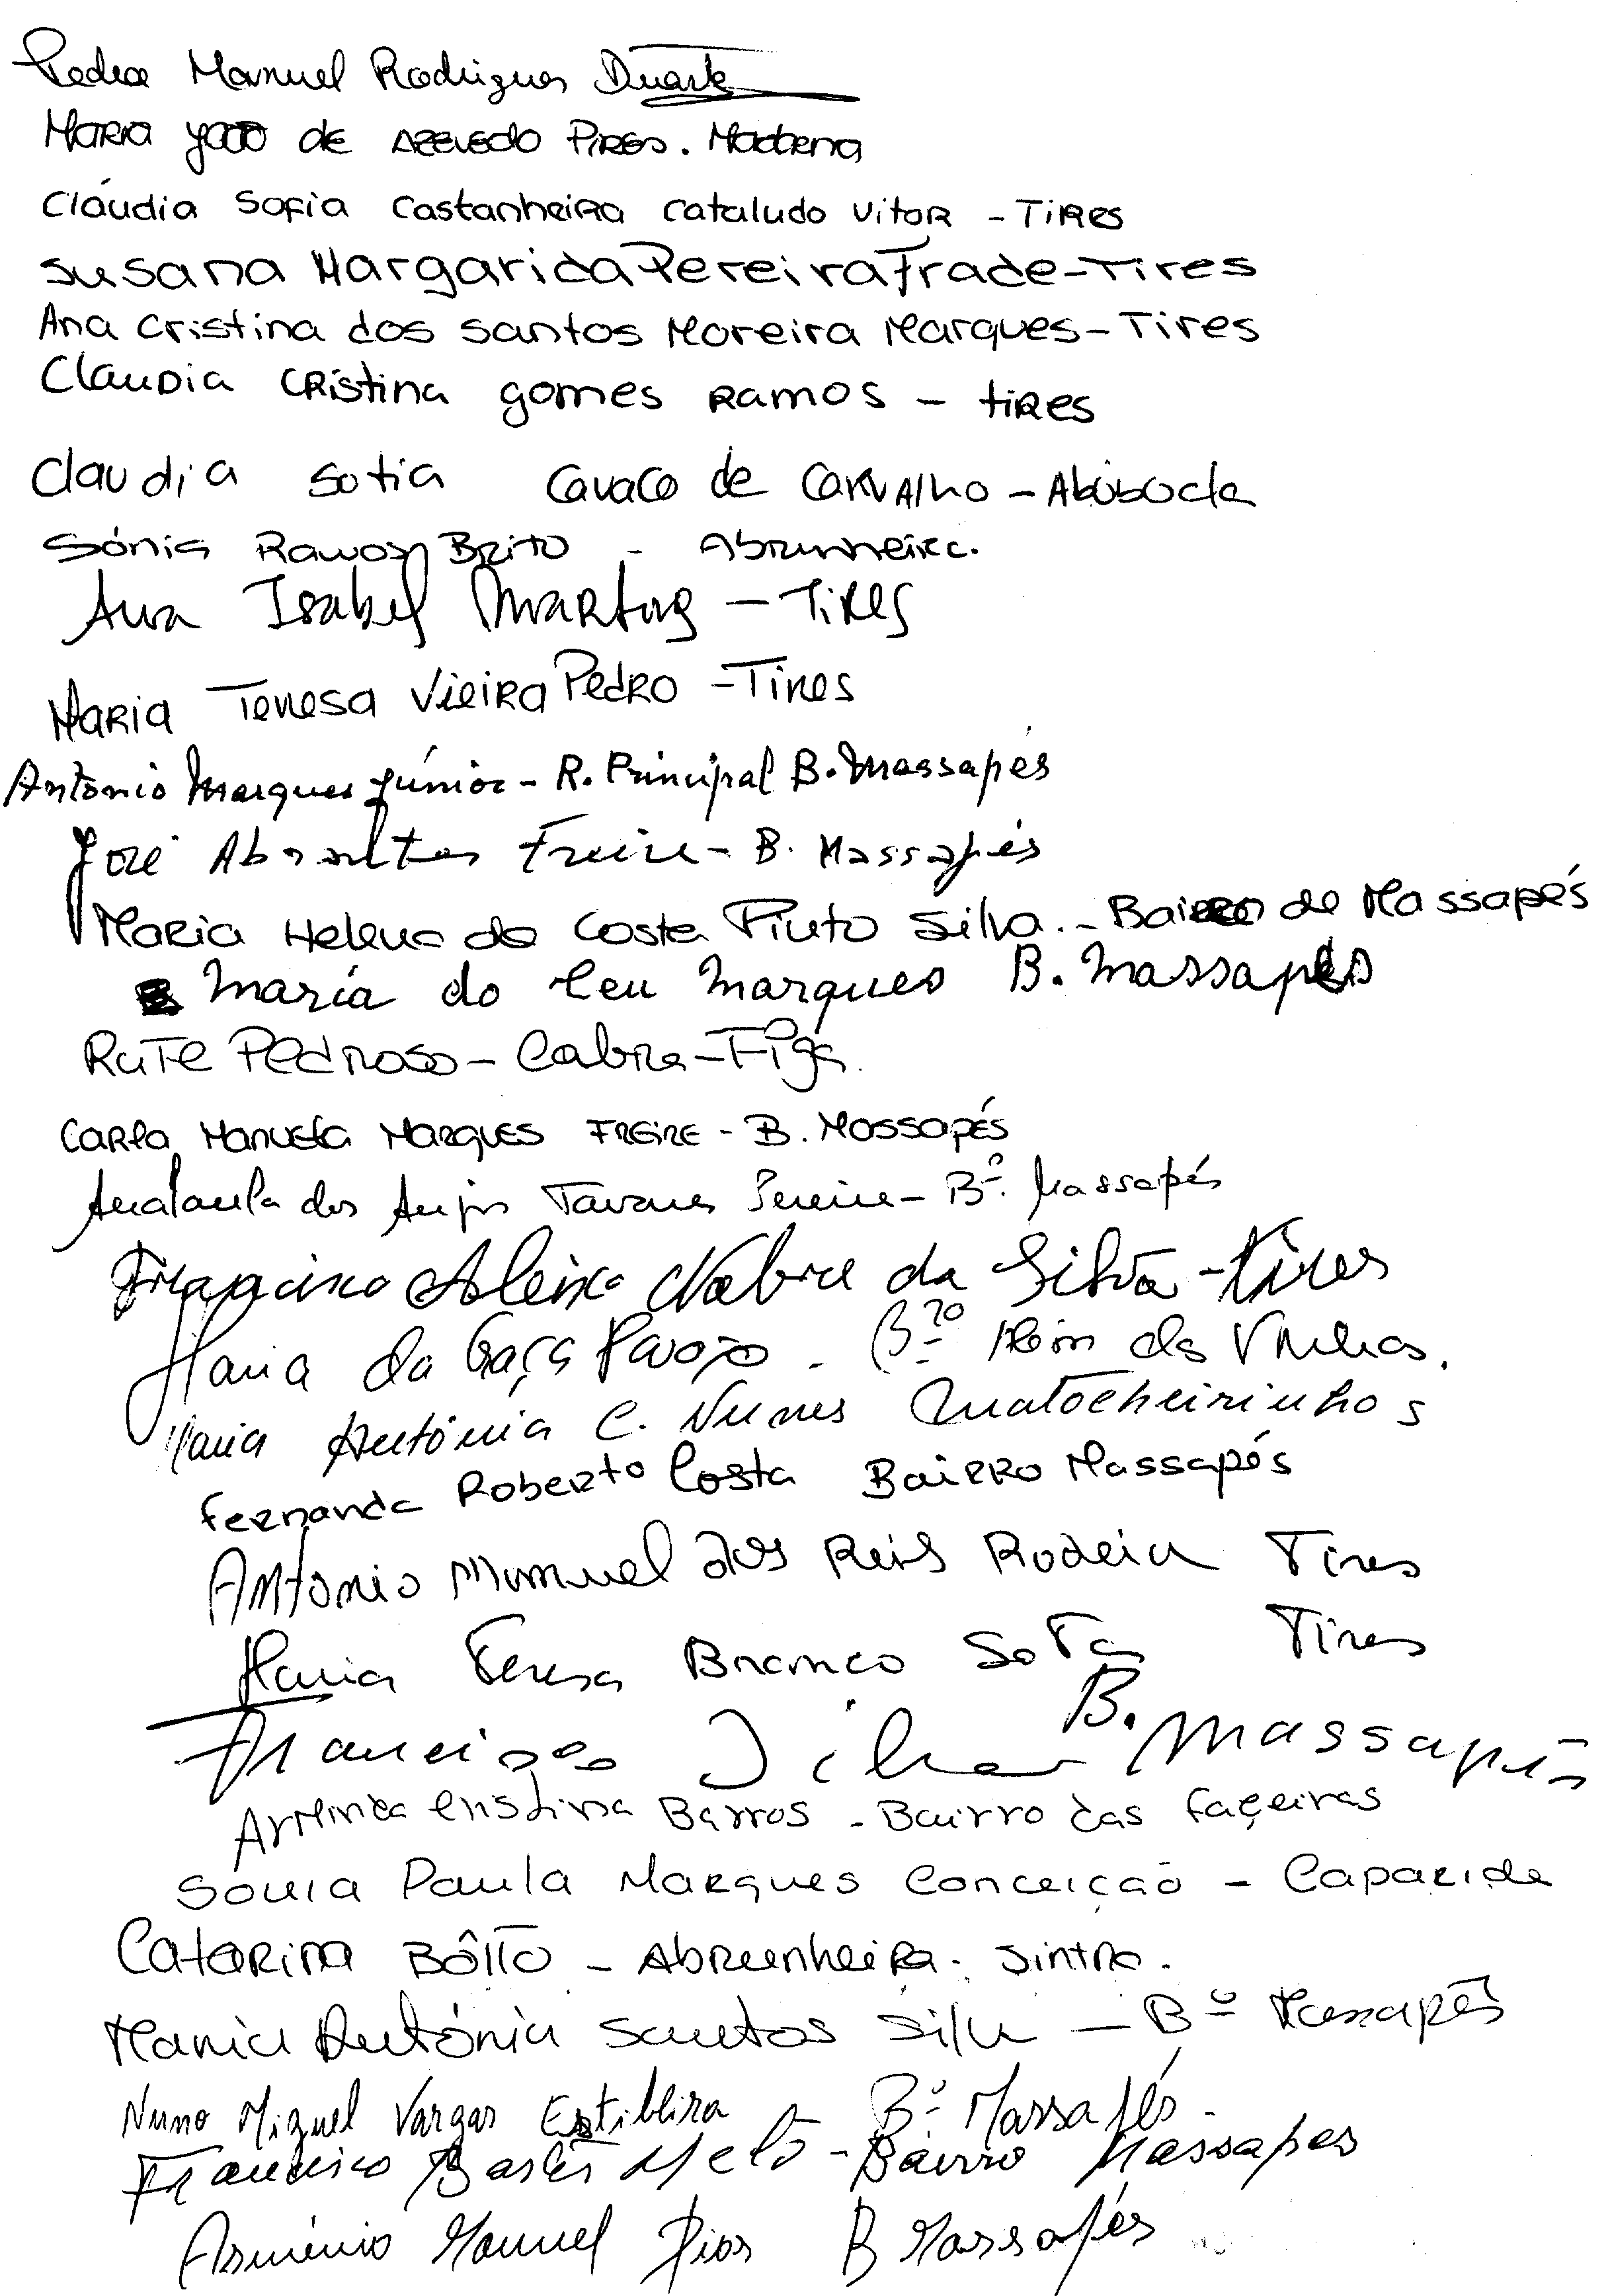 Pedro Manuel Rodrigues Duarte
Maria João de Azevedo Pires. Madorna
Cláudia Sofia Castanheira Cataludo Vitor - Tires
Susana Margarida Pereira Frade - Tires
Ana Cristina dos Santos Moreira Marques - Tires
Claudia Cristina gomes Ramos - tires
Claudia Sofia Cavaco de Carvalho - Abóboda
Sónia Ramos Brito - Abrunheira.
Ana Isabel Martins - Tires
Maria Teresa Vieira Pedro - Tires
António Marques Júnior - R. Principal B. Massapés
José Freire - B. Massapés
Maria Helena da Costa Pinto Silva. - Bairro de Massapés
Maria do Ceu Marques B. Massapés
Rute Pedroso - Cabra - Figa
Carla Manuela Marques Freire - B. Mossapés
Ana Paula dos Anjos Tavares Pereira - Bº. Massapés
Francisco Aleixo Nobre da Silva - Tires
Maria da Graça - Bro Além das Vinhas.
Maria Antónia C. Nunes Matocheirinhos
Fernanda Roberto Costa Bairro Massapés
António Manuel dos Reis Rodeia Tires
Maria Teresa Branco Sota Tires
Francisco B. Massapés
Arminda Cristina Barros - Bairro das Façeiras
Sonia Paula Marques Conceição - Caparide
Catarina Bôtto - Abrunheira. Sintra.
Maria Antónia Santos Silva - Bº Massapés
Nuno Miguel Vargas Bº Massapés.
Francisco Melo - Bairro Massapes
Arménio Manuel Dias B Massapés